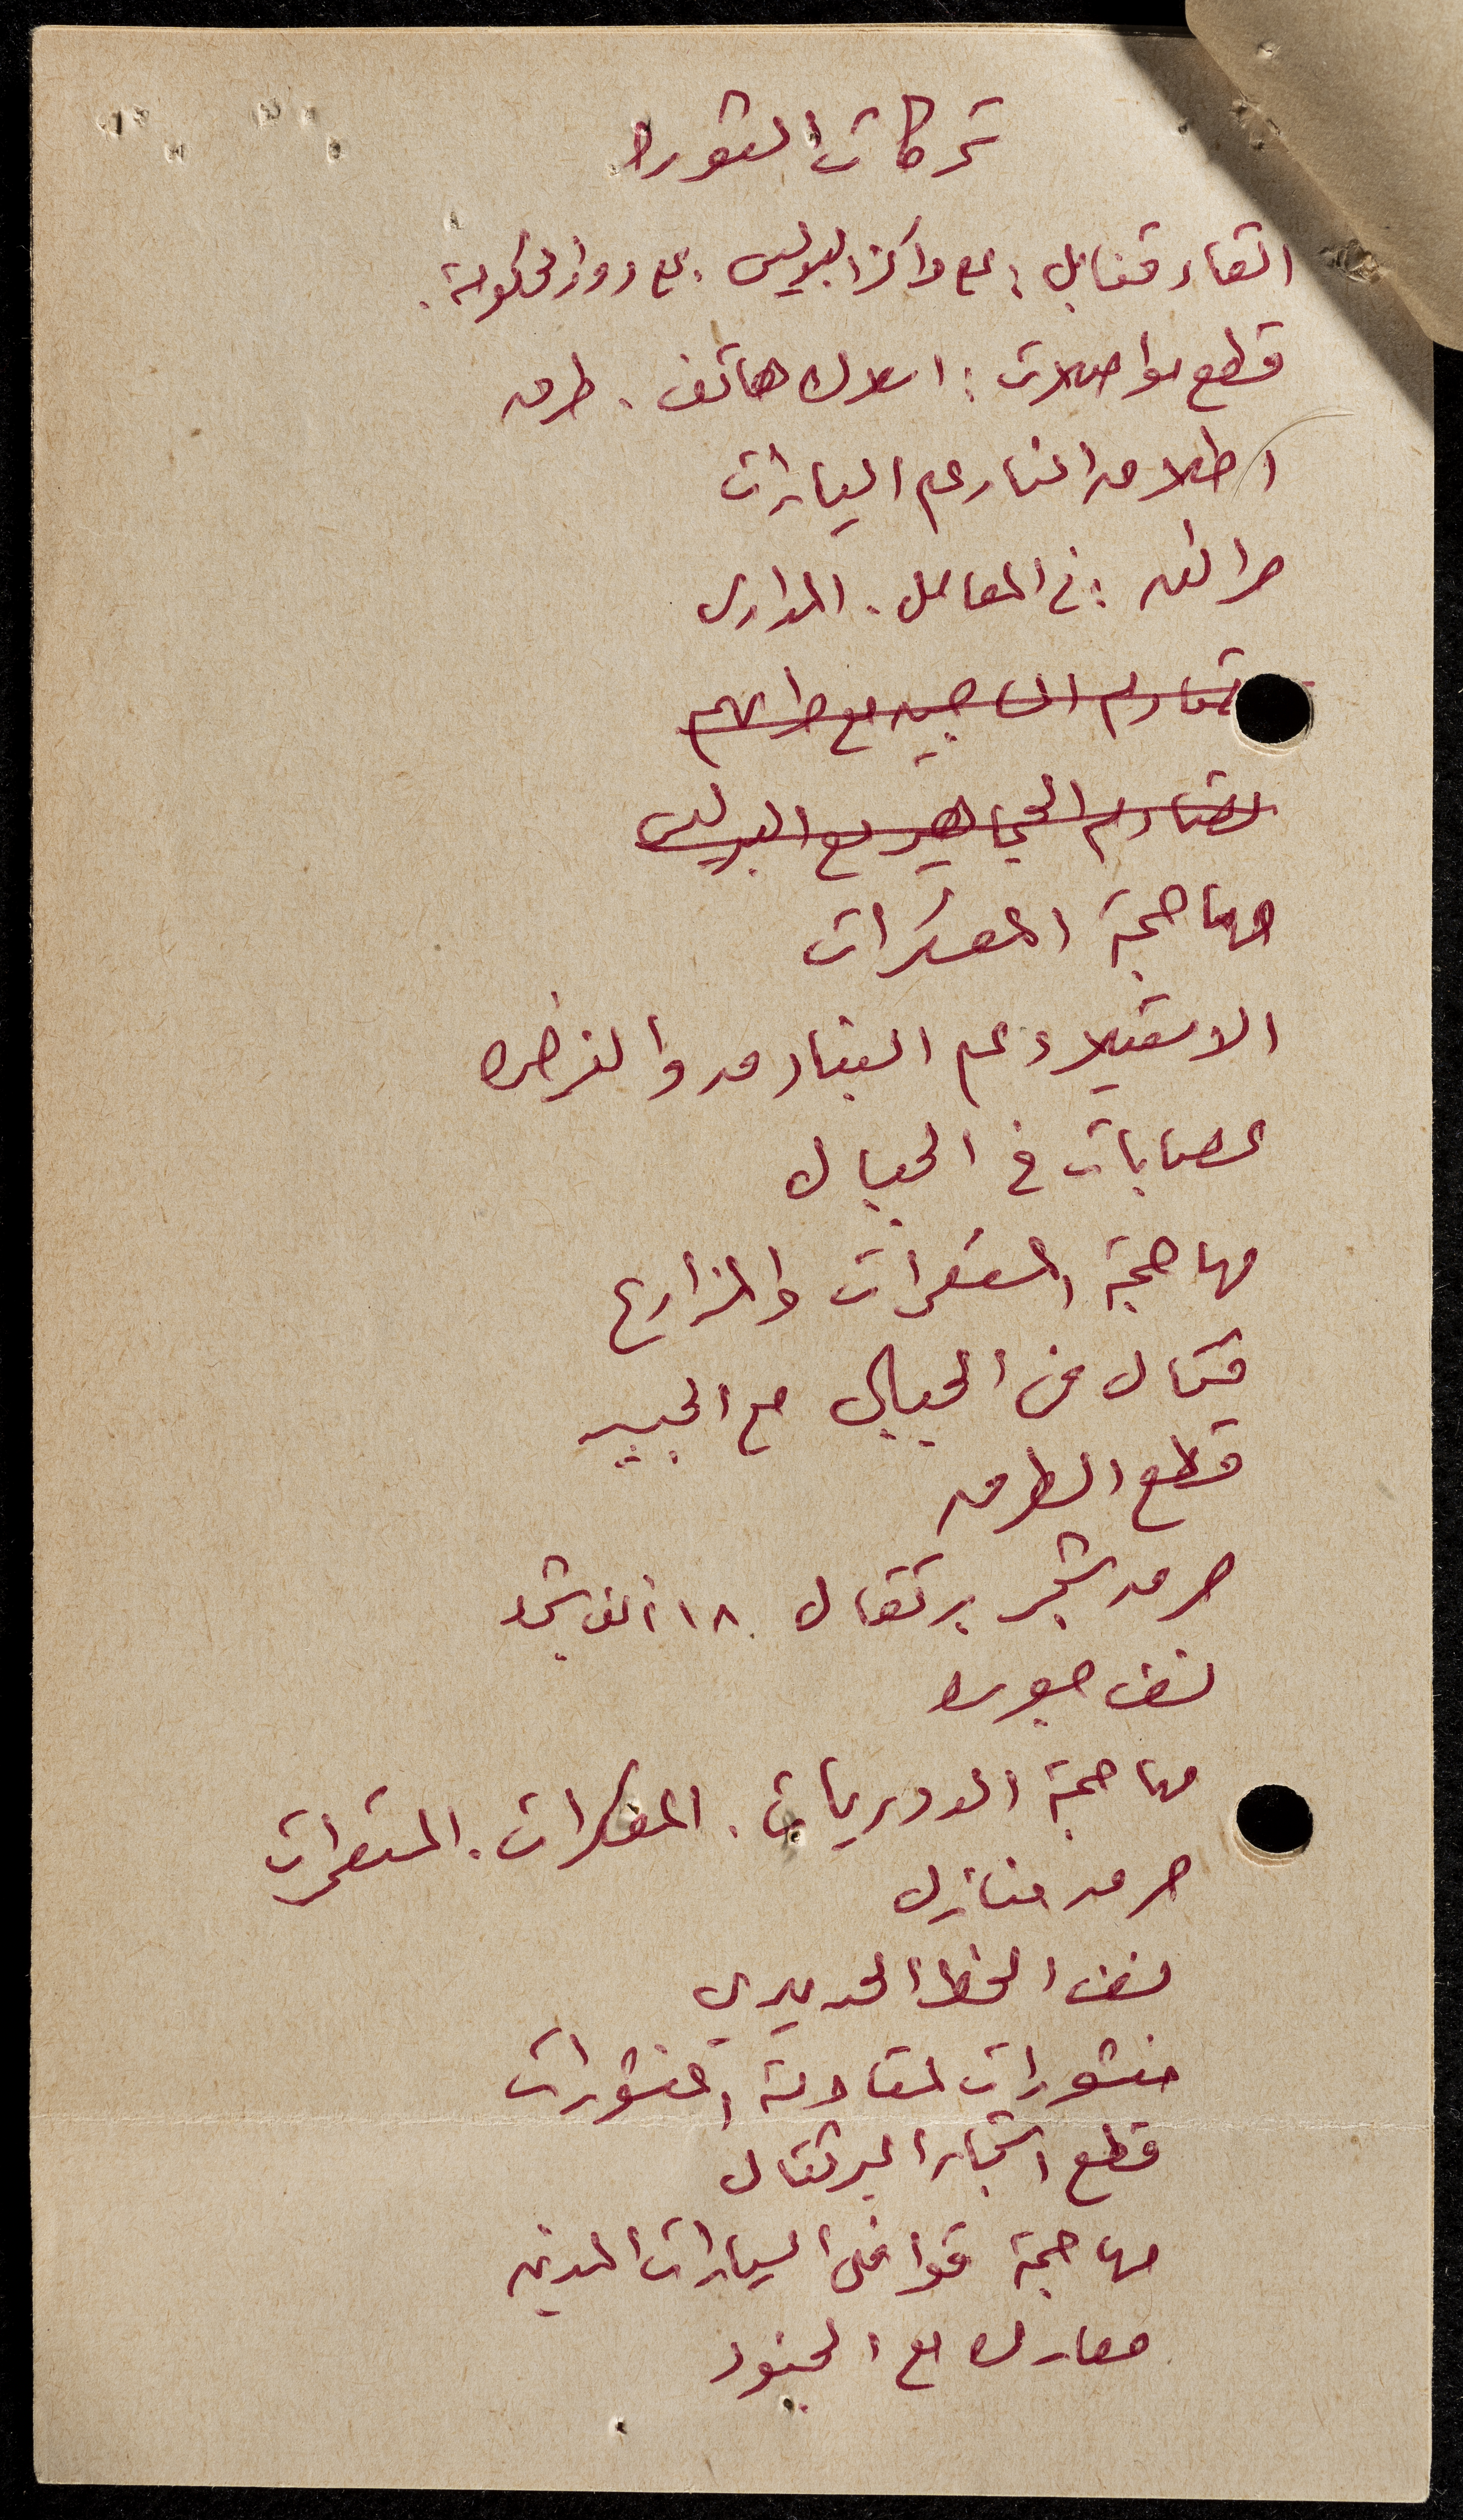 تحركات الثورة
القاء قنابل : على مراكز البوليس . على دوائر الحكومة .
قطع مواصلات : اسلاك هاتف . طرق
اطلاق النار على السيارات
حرائق : في المعامل . المدارس
تصادم مع حراسهم
تصادم الجماهير مع البوليس
مهاجمة المعسكرات
الاستيلاء على البنادق والذخيرة
عصابات في الجبال
مهاجمة المستعمرات والمزارع
قتال في الجبال مع الجيش
قطع الطرق
حرق شجر برتقال ١٨ ألف شجرة
نسف جسور
مهاجمة الدوريات . المعسكرات . المستعمرات
حرق منازل
نسف الخط الحديدي
منشورات لمقاومة المنشورات
قطع اشجار البرتقال
مهاجمة قوافل السيارات المدنية
معارك مع الجنود